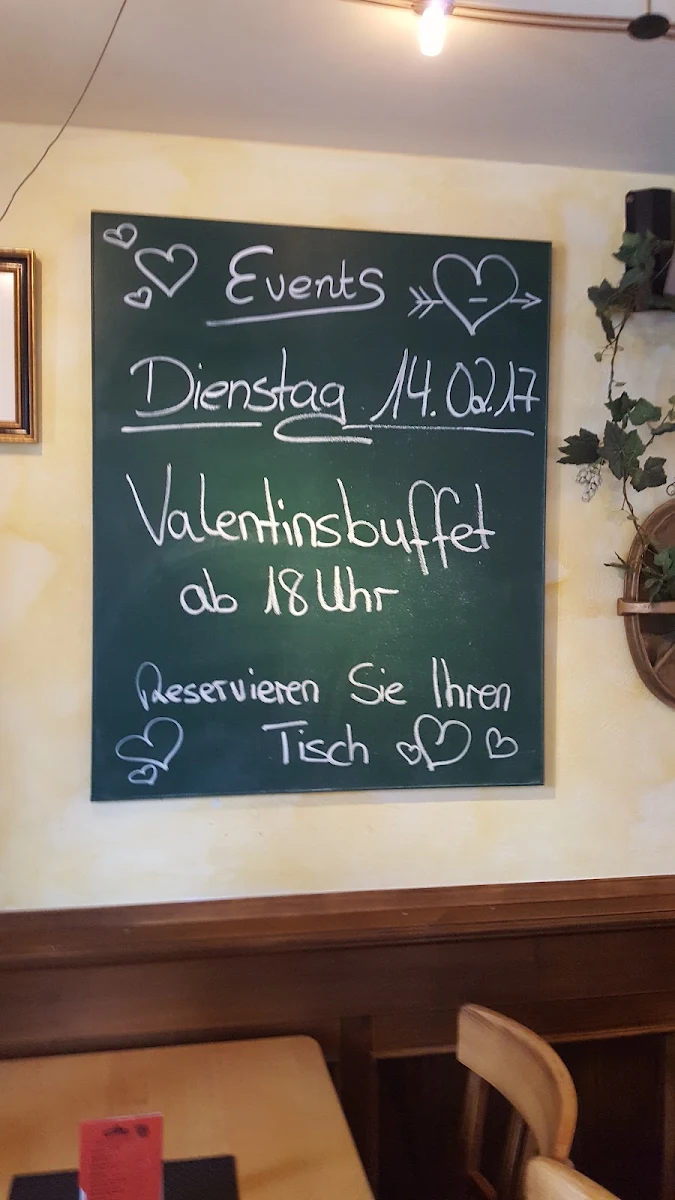 Events
Dienstag 14.02.17
Valentinsbuffet
ab 18 Uhr
Reservieren Sie Ihren
Tisch